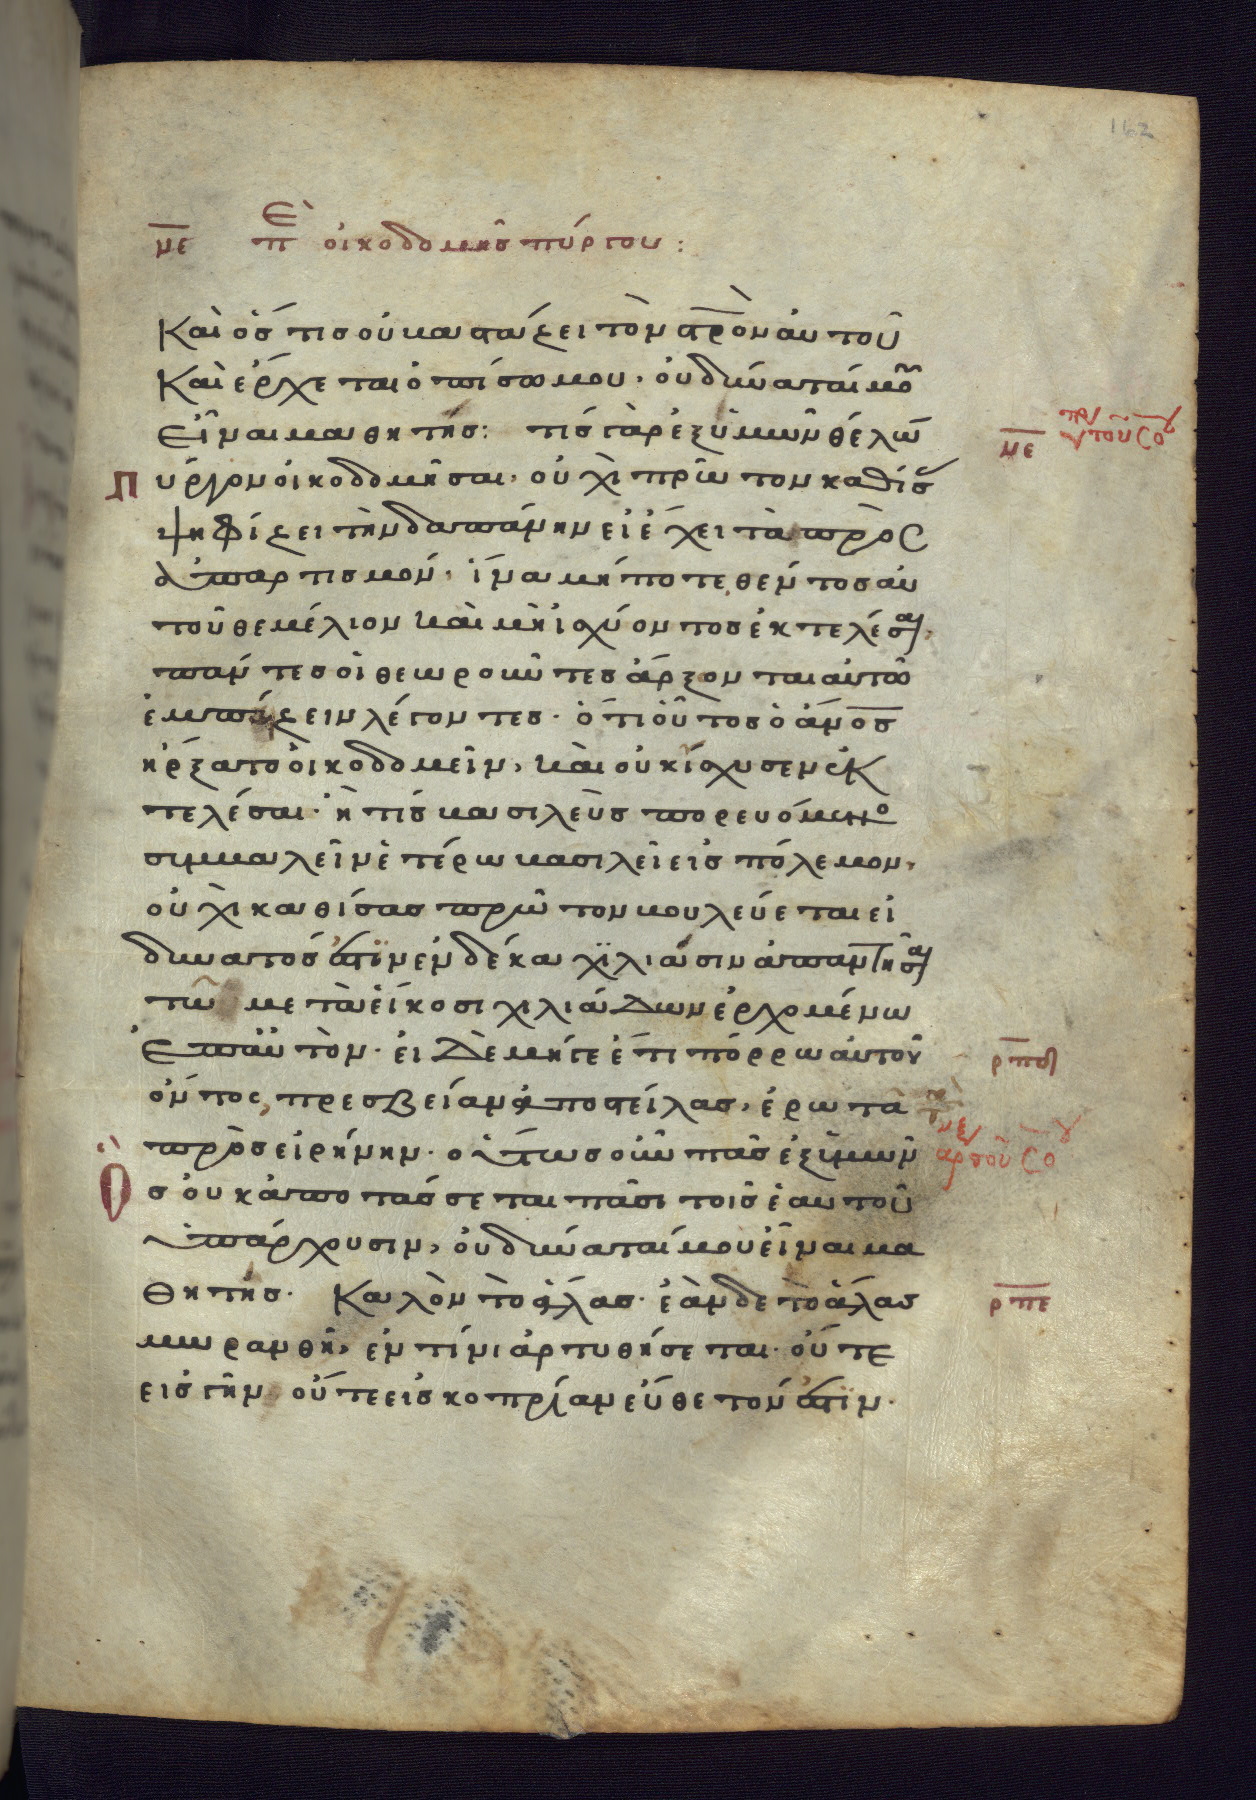 162
με περὶ οἰκοδομῆσ πύργου:
Καὶ ὅσ τισ οὐ βαστάζει τὸν στ̅ρ̅ὸν αὐτοῦ
Καὶ ἔρχεται ὀπίσω μου, οὐ δύναταί μου
εἶναι μαθητήσ: τίσ γὰρ ἐξ ὑμῶν θέλων
με
Πύργον οἰκοδομῆσαι, οὐχὶ πρῶτον καθίσασ
ψηφίζει τὴν δαπάνην εἰ ἔχει τὰ πρὸσ
ἀπαρτισμόν, ἵνα μήποτε θέντοσ αὐ
τοῦ θεμέλιον καὶ μὴ ἰσχύοντοσ ἐκτελέσαι,
πάντεσ οἱ θεωροῦντεσ ἄρξονται αὐτῶ
ἐμπαίζειν λέγοντεσ· ὅτι οὗτοσ ὁ ἄν̅ο̅σ̅
ἤρξατο οἰκοδομεῖν, καὶ οὐκ ἴσχυσεν ἐκ
τελέσαι· ἢ τίσ βασιλεὺσ πορευόμενο
συμβαλεῖν ἑτέρω βασιλεῖ εἰσ πόλεμον,
οὐχὶ καθίσασ πρῶτον βουλεύεται εἰ
δυνατόσ ἐστιν ἐν δέκα χιλιάσιν ἀπαντῆσαι
τῶ μετὰ εἴκοσι χιλιάδων ἐρχομένω
ἐπ αὐτὸν· εἰ δὲ μήγε ἔτι πόρρω αὐτοῦ
ρπδ
ὄντοσ, πρεσβείαν ἀποστείλασ, ἐρωτᾶ
πρὸσ εἰρήνην· οὕτωσ οὖν πᾶσ ἐξ ὑμῶν
Ὃσ οὐκ ἀποτάσσεται πᾶσι τοῖσ ἑαυτοῦ
ὑπάρχουσιν, οὐ δύναταί μου εἶναι μα
θητήσ· Καλὸν τὸ ἅλασ· ἐὰν δὲ τὸ ἅλασ
ρπε
μωρανθῆ, ἐν τίνι ἀρτυθήσεται· οὔτε
εἰσ γῆν οὔτε εἰσ κοπρίαν εὔθετόν ἐστιν·